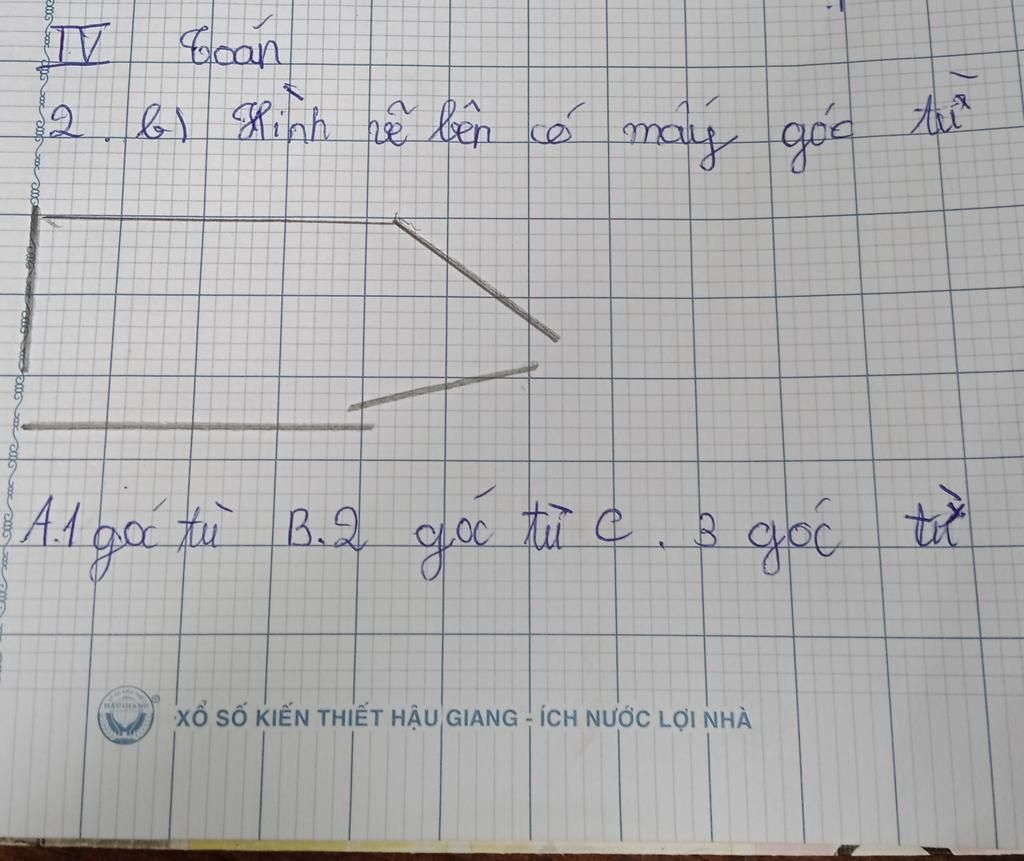 IV Toán
2. b) Hình vẽ bên có mấy góc tù
A. 1 góc tù B. 2 góc tù C. 3 góc tù
HẬU GIANG
XỔ SỐ KIẾN THIẾT HẬU GIANG - ÍCH NƯỚC LỢI NHÀ